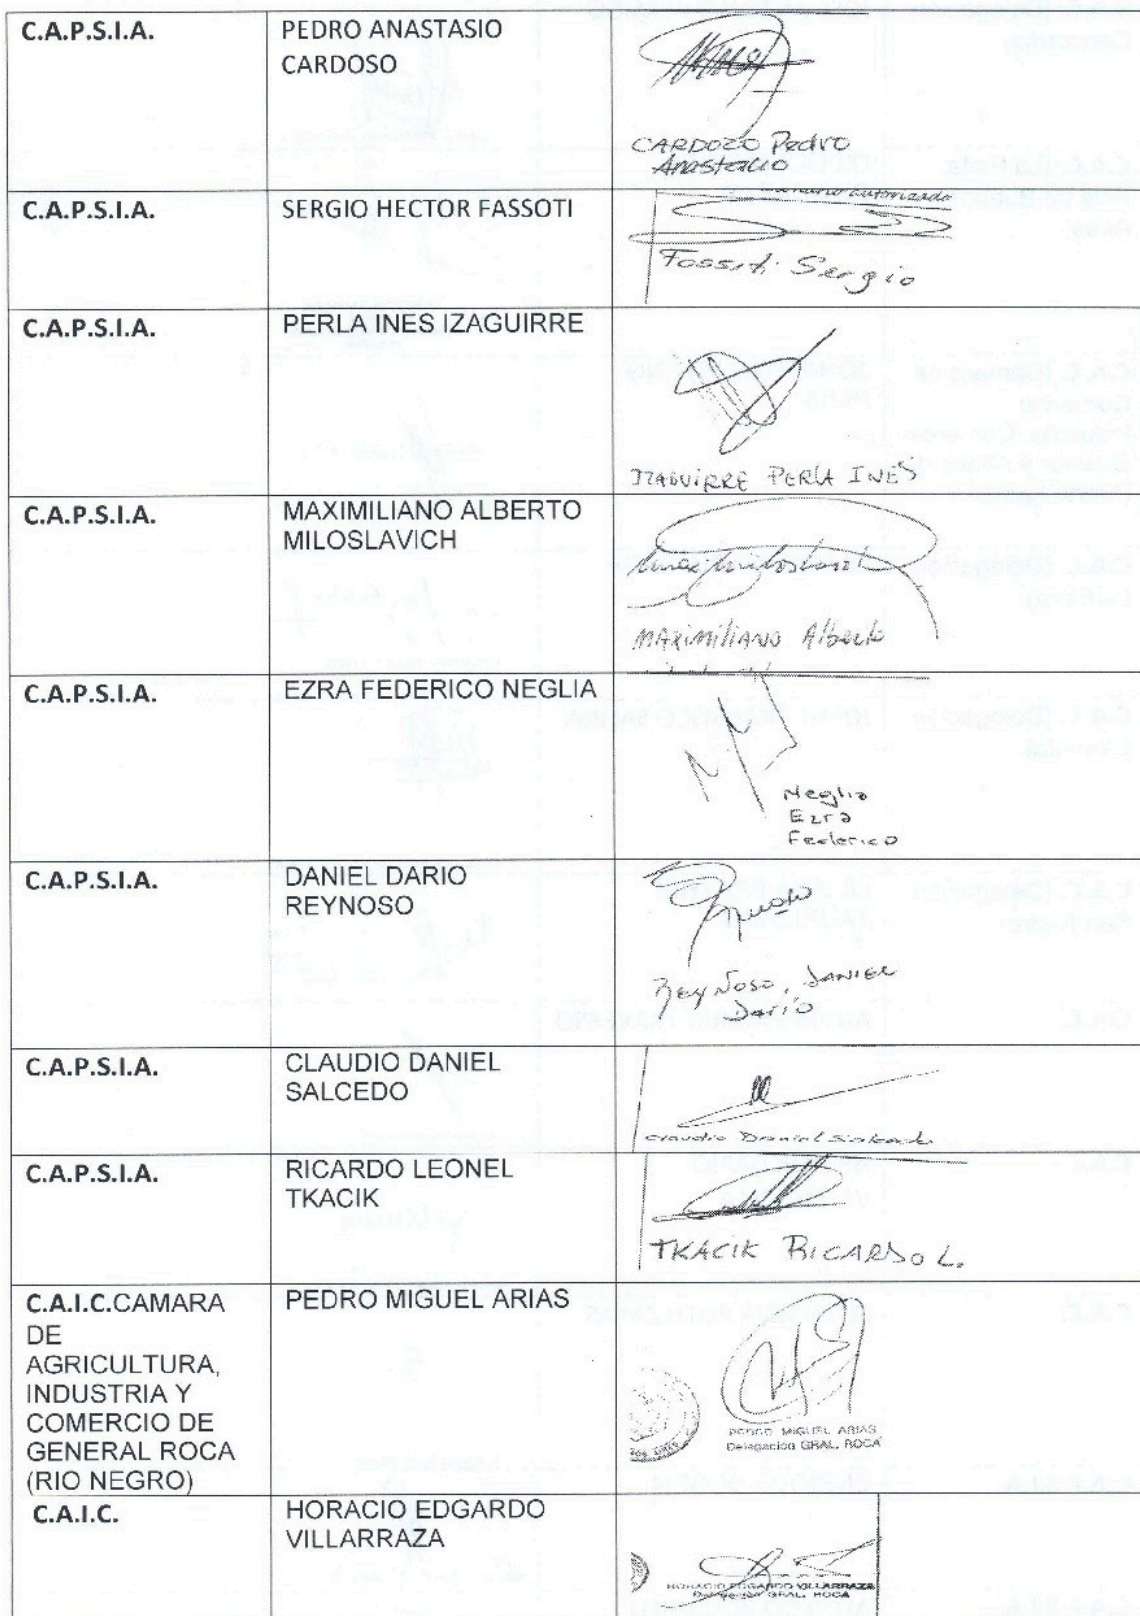 C.A.P.S.I.A.
PEDRO ANASTASIO
CARDOSO
CARDOZO Pedro
Anastacio
C.A.P.S.I.A.
SERGIO HECTOR FASSOTI
autorizado
Fassoti Sergio
C.A.P.S.I.A.
PERLA INES IZAGUIRRE
IZAGUIRRE PERLA INÉS
C.A.P.S.I.A.
MAXIMILIANO ALBERTO
MILOSLAVICH
MAXIMILIANO Alberto
C.A.P.S.I.A.
EZRA FEDERICO NEGLIA
Neglia
Ezra
Federico
C.A.P.S.I.A.
DANIEL DARIO
REYNOSO
Reynoso, DANIEL
Darío
C.A.P.S.I.A.
CLAUDIO DANIEL
SALCEDO
Claudio Daniel Salcedo
C.A.P.S.I.A.
RICARDO LEONEL
TKACIK
TKACIK RICARDO L.
C.A.I.C.CAMARA
DE
AGRICULTURA,
INDUSTRIA Y
COMERCIO DE
GENERAL ROCA
(RIO NEGRO)
PEDRO MIGUEL ARIAS
PEDRO MIGUEL ARIAS
Delegación GRAL. ROCA
C.A.I.C.
HORACIO EDGARDO
VILLARRAZA
HORACIO EDGARDO VILLARRAZA
GRAL. ROCA